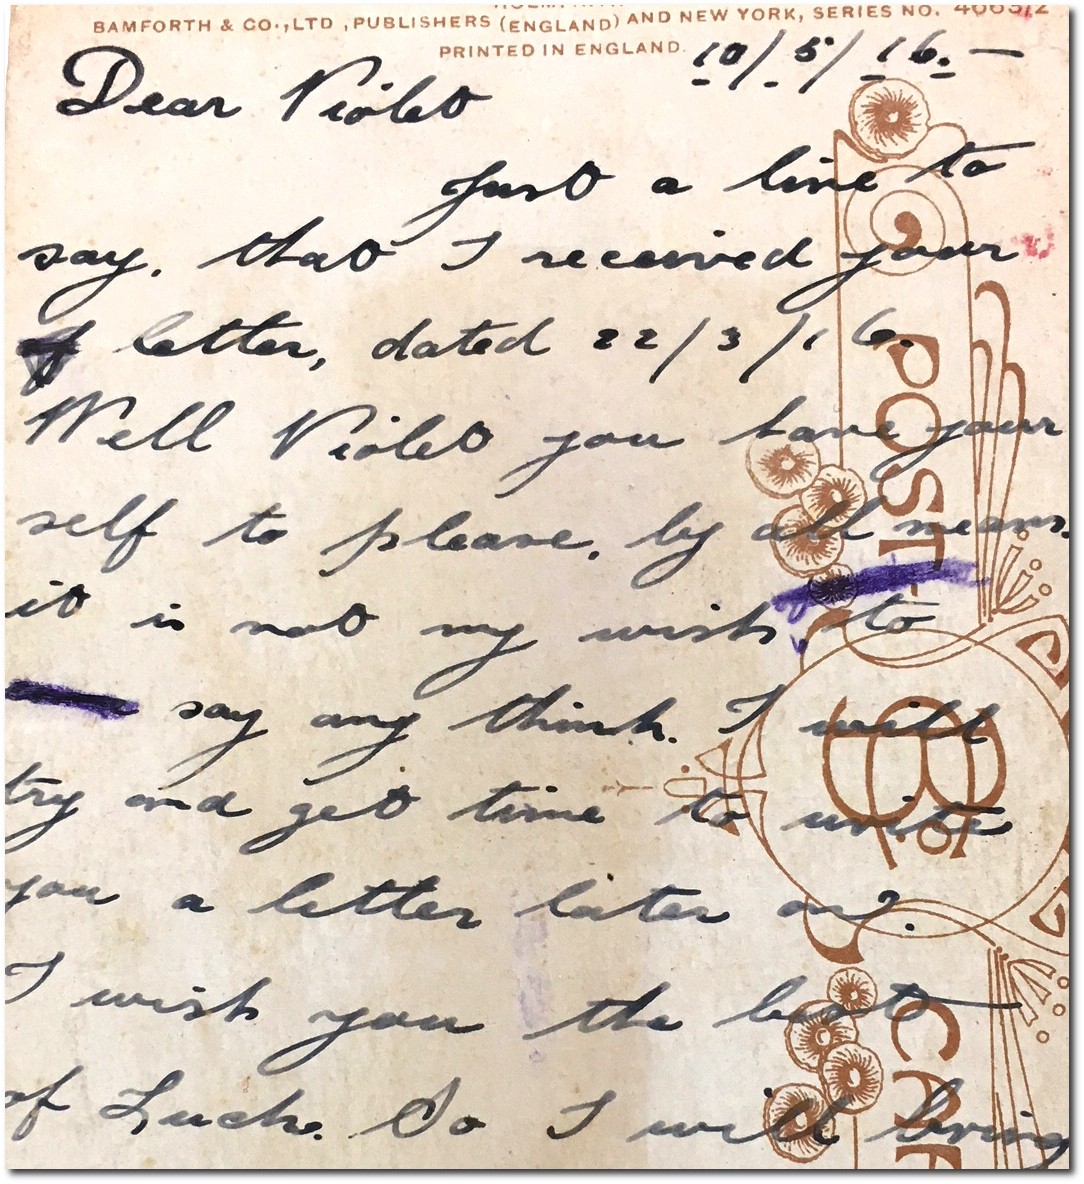 BAMFORTH & CO., LTD., PUBLISHERS (ENGLAND) AND NEW YORK, SERIES NO.
PRINTED IN ENGLAND.
10/5/16.—
Dear Violet
Just a line to
say, that I received your
letter, dated 22/3/16.
Well Violet you have your
self to please, by all means.
it is not my wish to
say any think. I will
try and get time to write
you a letter later on?.
I wish you the best
of Luck. So I will bring
POST
B & Co
CAR